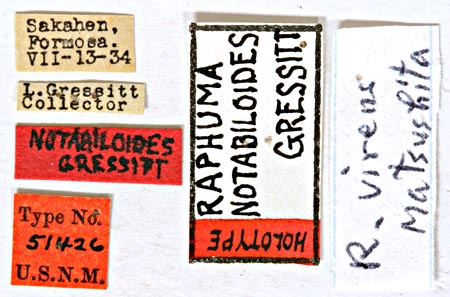 Sakahen,
Formosa.
VII-13-34
L.Gressitt
Collector
NOTABILOIDES
GRESSITT
Type No.
51426
U.S.N.M.
RAPHUMA
NOTABILOIDES
GRESSITT
HOLOTYPE
R. virens
Matsushita